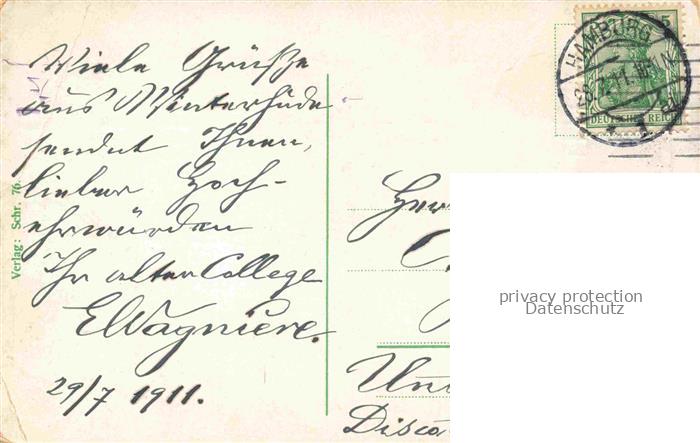 Viele Grüße
aus Winterhude
sendet Ihnen,
lieber Hoch-
ehrwürden
Ihr alter College
EWagniere.
29/7 1911.
Verlag: Schr. 76.
HAMBURG
DEUTSCHES REICH
5
1
Her
privacy protection
Datenschutz
Disco